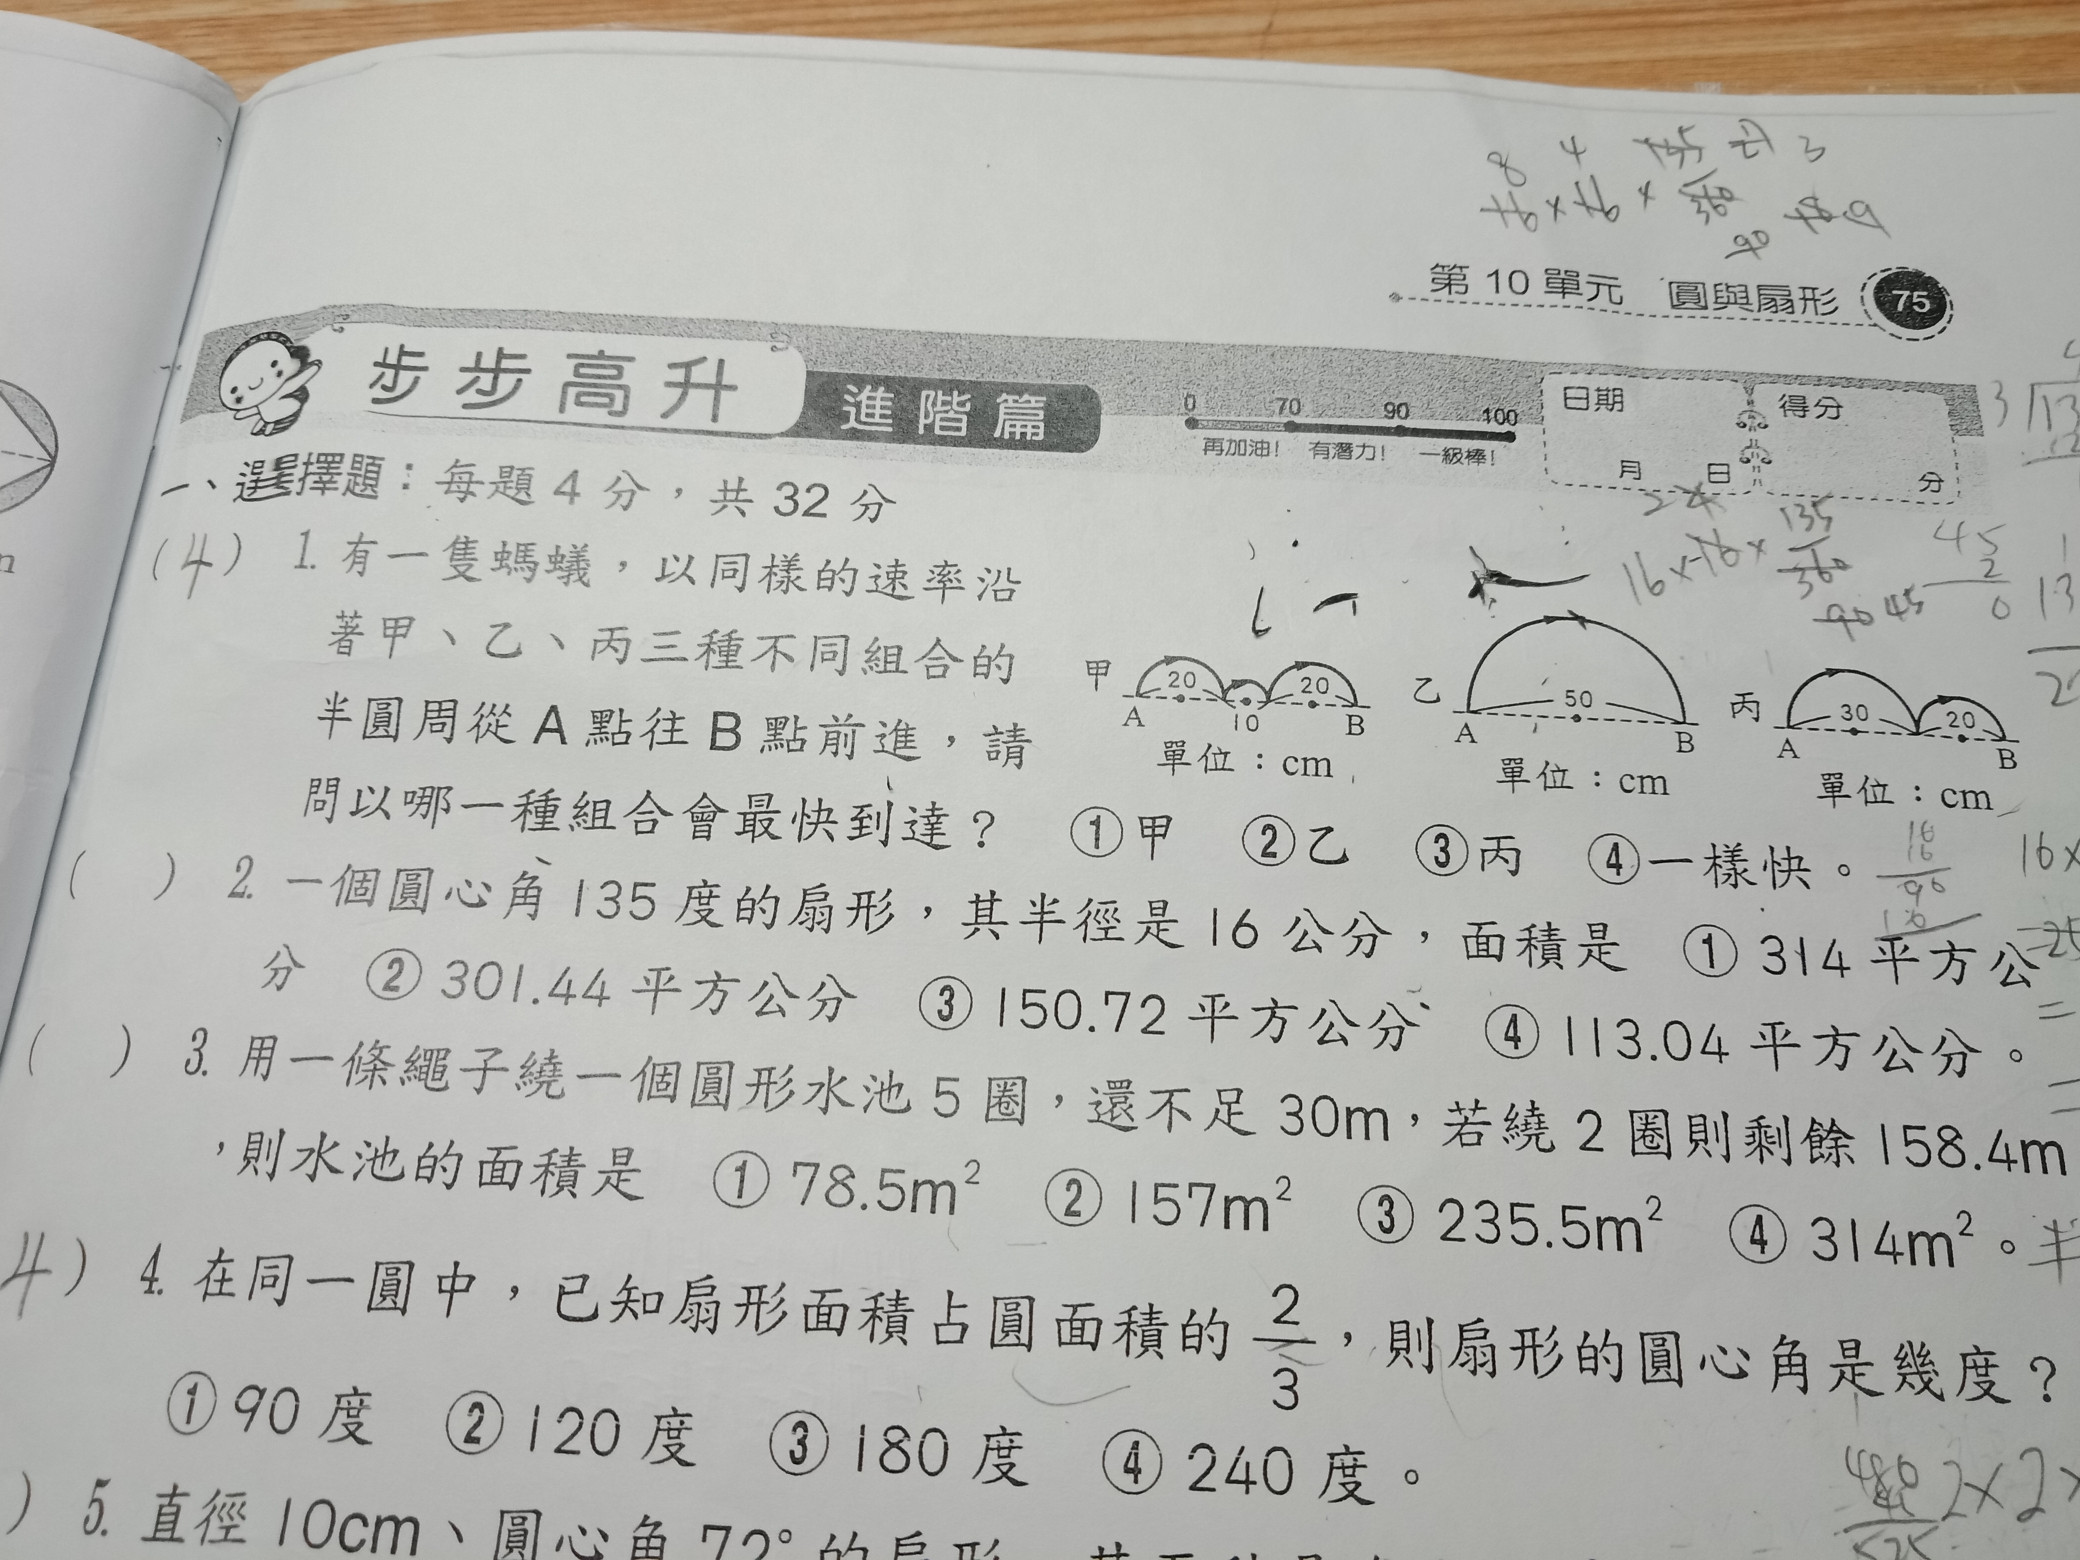 8 4 3
第 10 單元 圓與扇形 75
步步高升 進階篇
0 70 90 100
再加油! 有潛力! 一級棒!
日期 月 日
得分 分
一、選擇題:每題 4 分,共 32 分
16×16×135/360
(4) 1. 有一隻螞蟻,以同樣的速率沿
著甲、乙、丙三種不同組合的
半圓周從 A 點往 B 點前進,請
問以哪一種組合會最快到達? ①甲 ②乙 ③丙 ④一樣快。
甲 20 10 20 A B 單位:cm
乙 50 A B 單位:cm
丙 30 20 A B 單位:cm
( ) 2. 一個圓心角 135 度的扇形,其半徑是 16 公分,面積是 ① 314 平方公
分 ② 301.44 平方公分 ③ 150.72 平方公分 ④ 113.04 平方公分。
( ) 3. 用一條繩子繞一個圓形水池 5 圈,還不足 30m,若繞 2 圈則剩餘 158.4m
,則水池的面積是 ① 78.5m² ② 157m² ③ 235.5m² ④ 314m²。
4) 4. 在同一圓中,已知扇形面積占圓面積的 2/3,則扇形的圓心角是幾度?
① 90 度 ② 120 度 ③ 180 度 ④ 240 度。
) 5. 直徑 10cm、圓心角 72° 的扇形